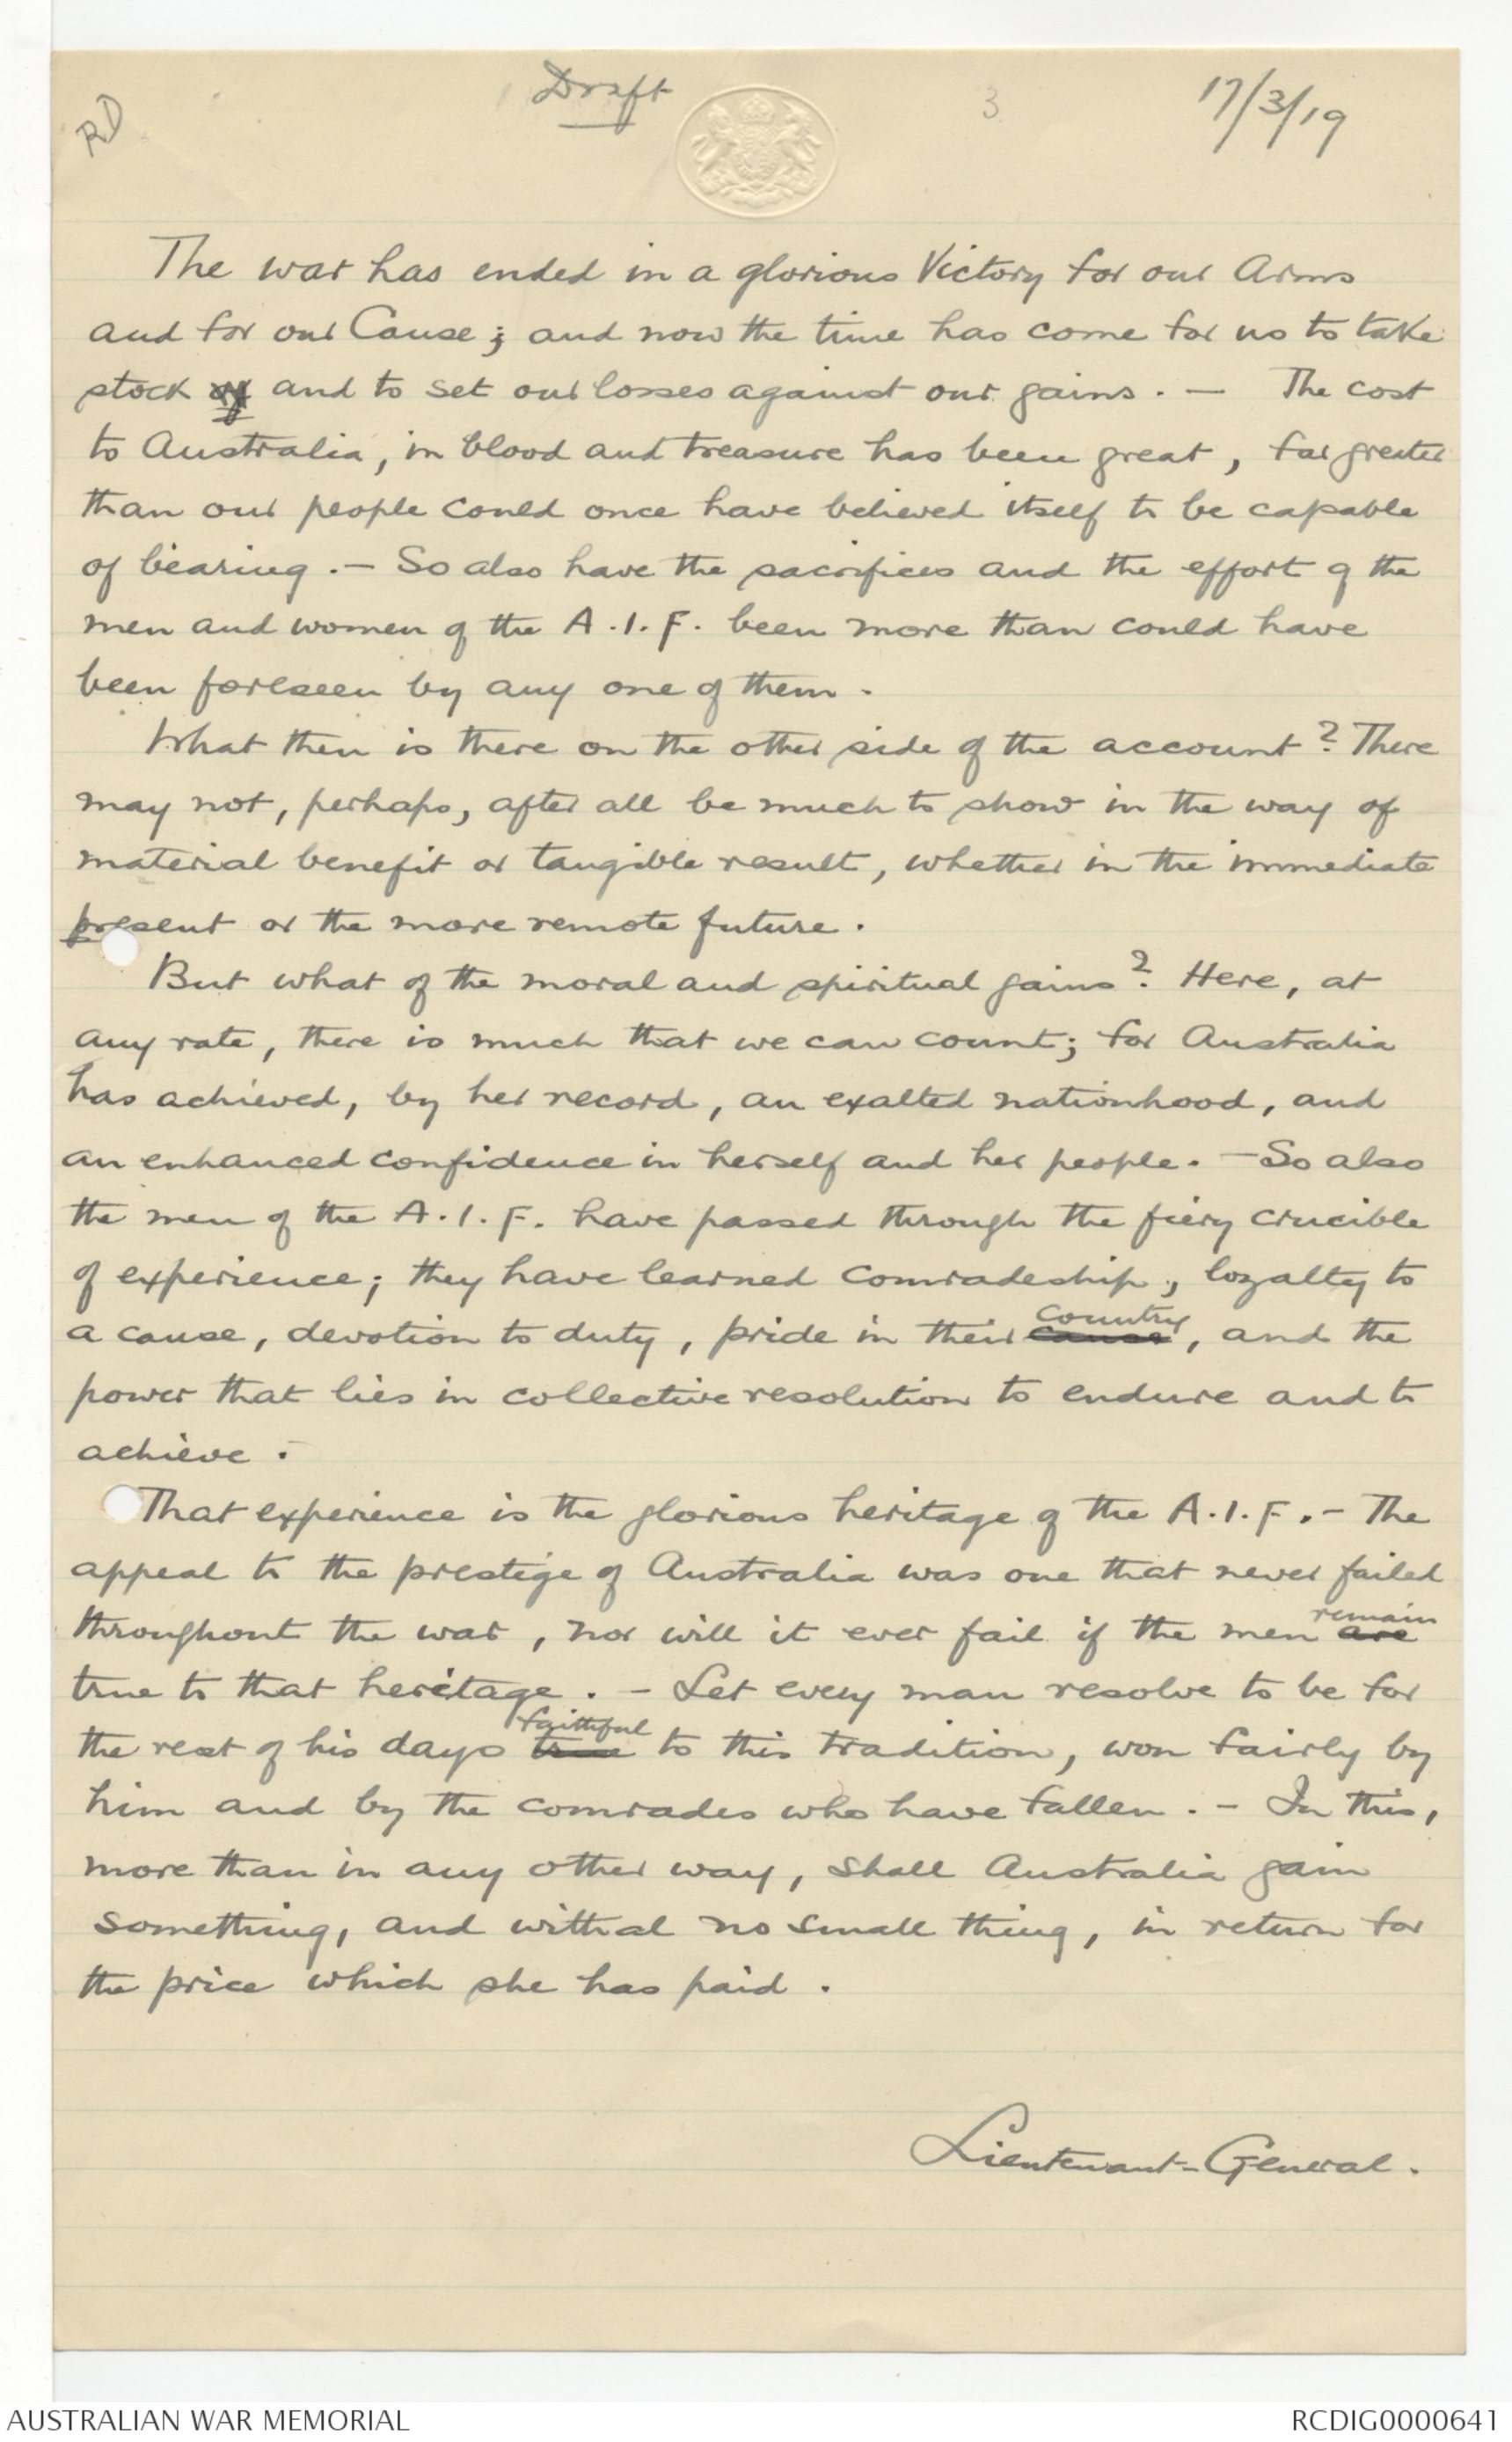 RD
Draft
3
17/3/19
The war has ended in a glorious Victory for our Arms
and for our Cause; and now the time has come for us to take
stock of and to set our losses against our gains. — The cost
to Australia, in blood and treasure has been great, far greater
than our people could once have believed itself to be capable
of bearing. — So also have the sacrifices and the effort of the
men and women of the A.I.F. been more than could have
been foreseen by any one of them.
What then is there on the other side of the account? There
may not, perhaps, after all be much to show in the way of
material benefit or tangible result, whether in the immediate
present or the more remote future.
But what of the moral and spiritual gains? Here, at
any rate, there is much that we can count; for Australia
has achieved, by her record, an exalted nationhood, and
an enhanced confidence in herself and her people. — So also
the men of the A.I.F. have passed through the fiery crucible
of experience; they have learned comradeship, loyalty to
a cause, devotion to duty, pride in their cause country, and the
power that lies in collective resolution to endure and to
achieve.
That experience is the glorious heritage of the A.I.F. — The
appeal to the prestige of Australia was one that never failed
throughout the war, nor will it ever fail if the men are remain
true to that heritage. — Let every man resolve to be for
the rest of his days true faithful to this tradition, won fairly by
him and by the comrades who have fallen. — In this,
more than in any other way, shall Australia gain
something, and withal no small thing, in return for
the price which she has paid.
Lieutenant-General.
AUSTRALIAN WAR MEMORIAL
RCDIG0000641